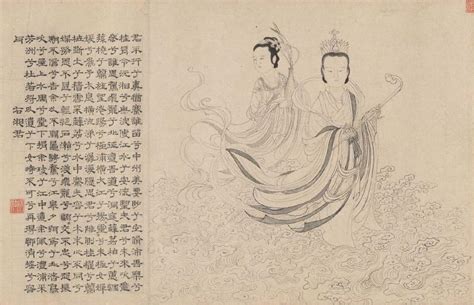 君不行兮夷猶蹇誰留兮中州美要眇兮宜修沛吾乘兮
桂舟令沅湘兮無波使江水兮安流望夫君兮未來
吹參差兮誰思駕飛龍兮北征邅吾道兮洞庭薜荔柏兮蕙綢
蓀橈兮蘭旌望涔陽兮極浦橫大江兮揚靈揚靈兮未
極女嬋媛兮為余太息橫流涕兮潺湲隱思君兮陫側桂櫂兮蘭
枻斲冰兮積雪采薜荔兮水中搴芙蓉兮木末心不同兮
媒勞恩不甚兮輕絕石瀨兮淺淺飛龍兮翩翩交不忠兮怨長
期不信兮告余以不閒朝騁騖兮江皋夕弭節兮北渚鳥
次兮屋上水周兮堂下捐余玦兮江中遺余佩兮澧浦采
芳洲兮杜若將以遺兮下女時不可兮再得聊逍遙兮容
與
右湘君